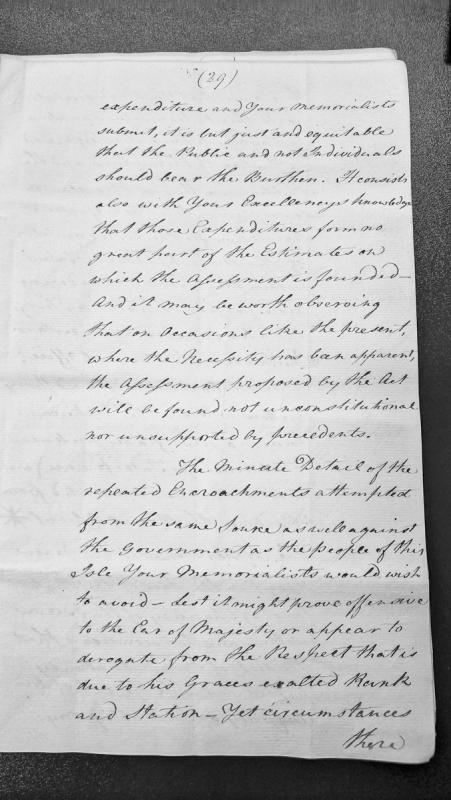 (29)
expenditure and Your Memorialists
submit, it is but just and equitable
that the Public and not Individuals
should bear the Burthen. It consists
also with Your Excellencys knowledge
that those Expenditures form no
great part of the Estimates on
which the Assessment is founded—
And it may be worth observing
that on Occasions like the present,
where the Necessity has been apparent,
the Assessment proposed by the Act
will be found, not unconstitutional
nor unsupported by precedents.
The Minute Detail of the
repeated Encroachments attempted
from the same Source as well against
the Government as the People of this
Isle Your Memorialists would wish
to avoid — Lest it might prove offensive
to the Ear of Majesty or appear to
derogate from the Respect that is
due to his Graces exalted Rank
and Station — Yet circumstances
there